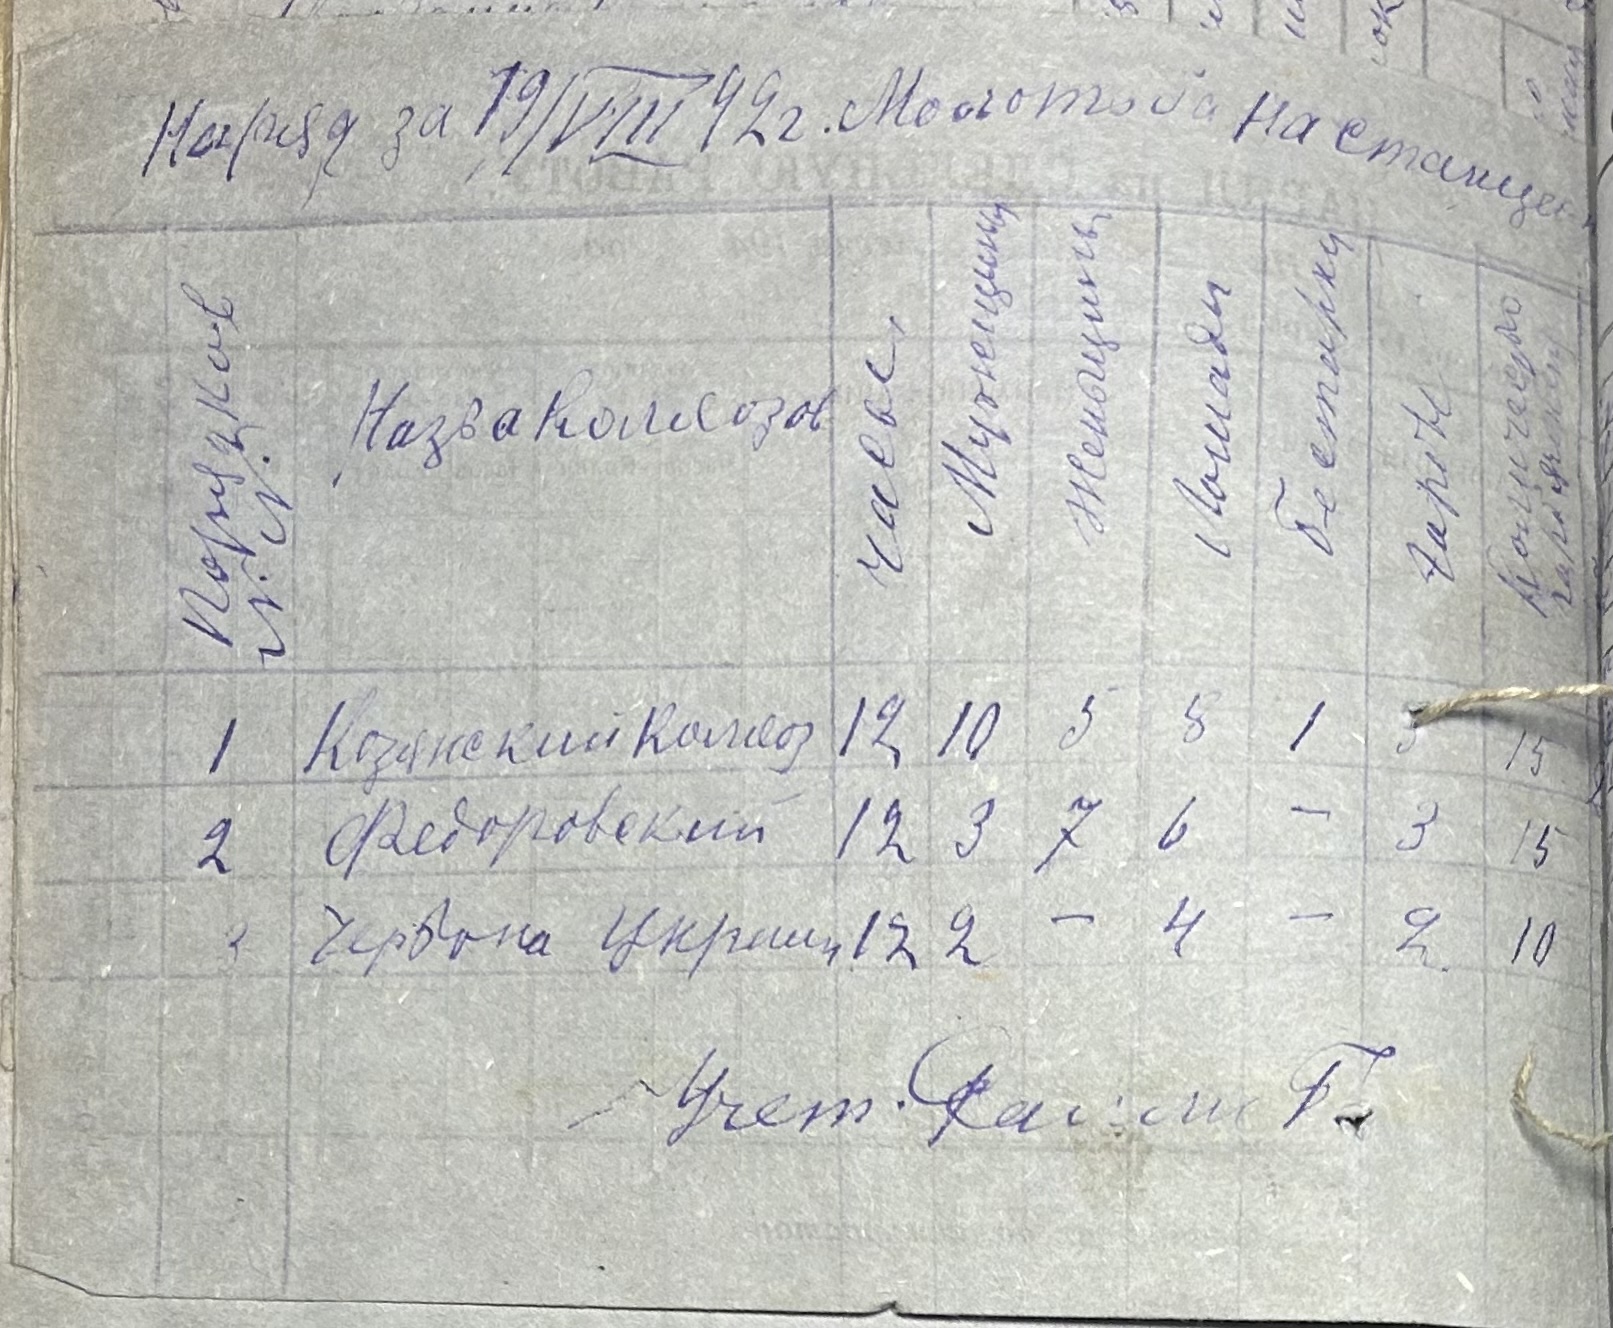 Наряд за 19/VIII 42г. Молотьба на станции
Порядков N.N.
Назва Колхозов
Часы
Мужчины
Женщины
Лошади
Бестарки
Количество
1 Козянский Колхоз 12 10 5 5 1 3 15
2 Федоровский 12 3 7 6 – 3 15
3 Червона Украина 12 2 – 4 – 2 10
Учет.